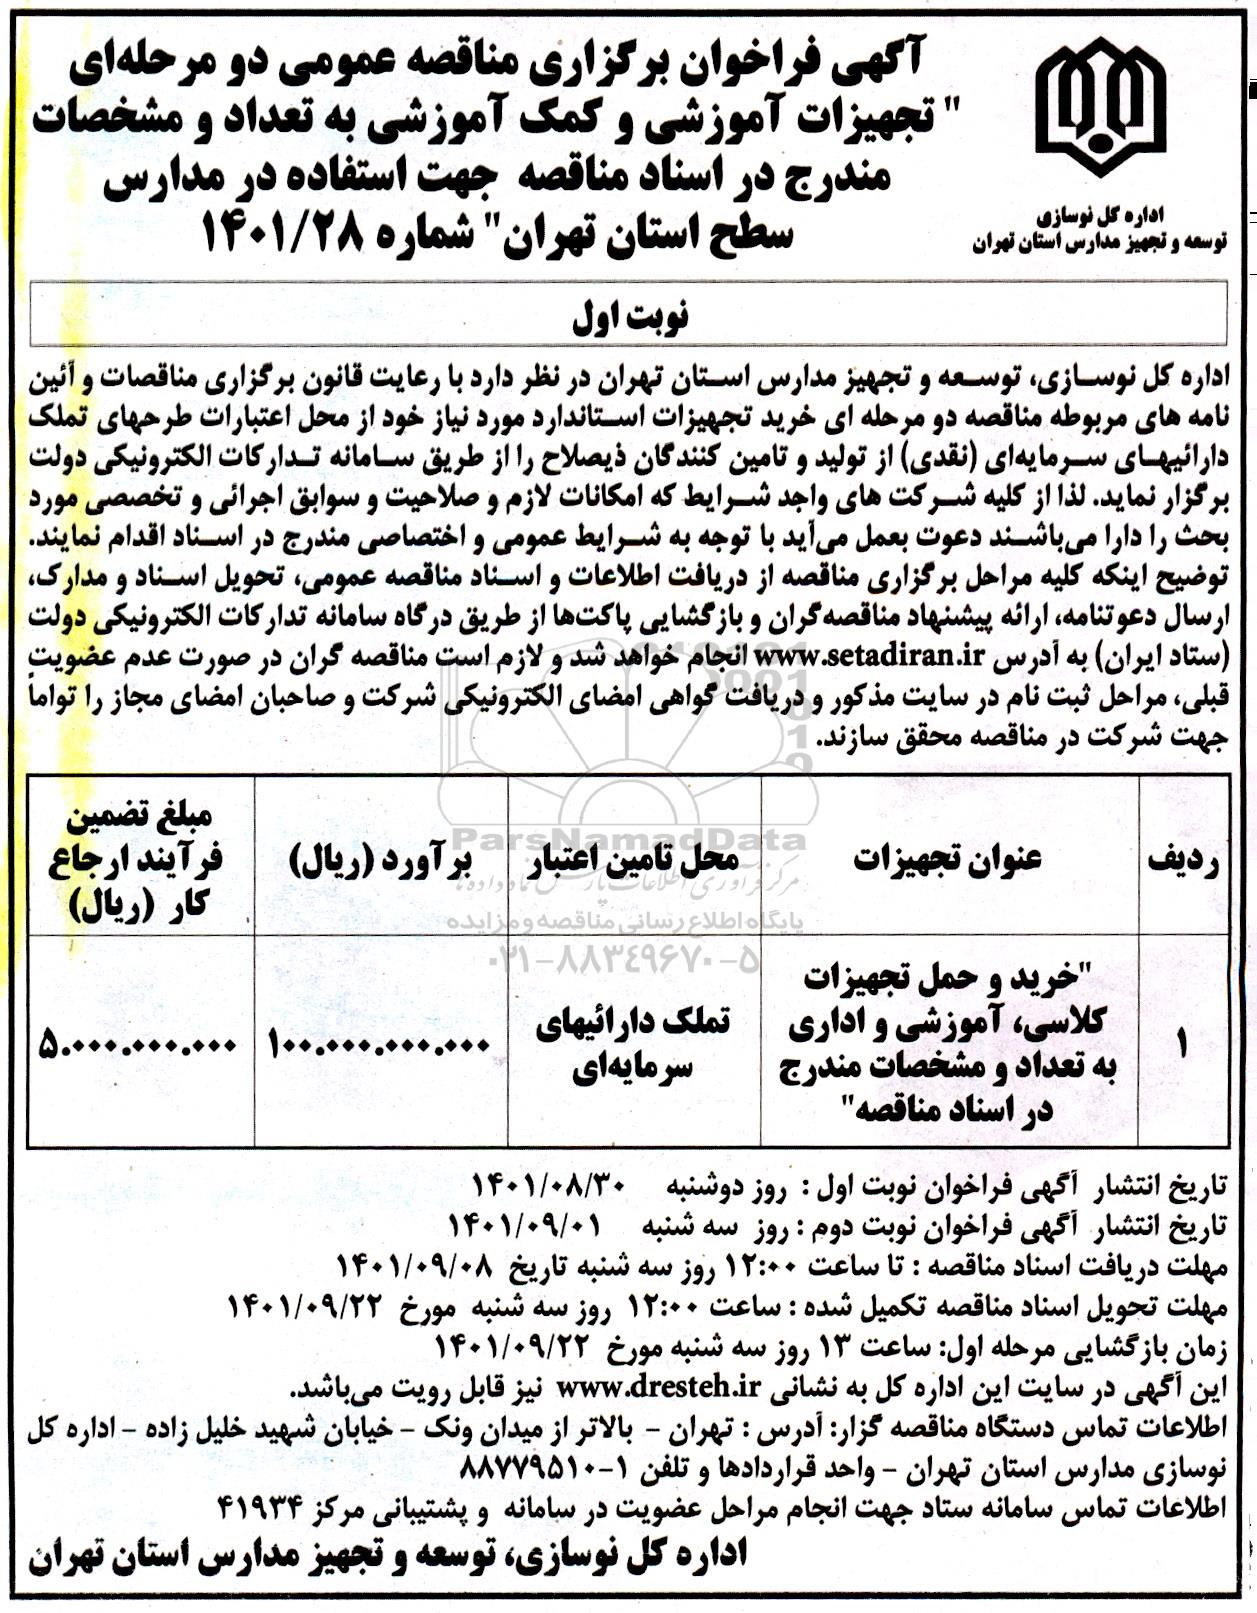 آگهی فراخوان برگزاری مناقصه عمومی دو مرحله‌ای
" تجهیزات آموزشی و کمک آموزشی به تعداد و مشخصات
مندرج در اسناد مناقصه جهت استفاده در مدارس
سطح استان تهران" شماره ۱۴۰۱/۲۸
اداره کل نوسازی
توسعه و تجهیز مدارس استان تهران
نوبت اول
اداره کل نوسازی، توسعه و تجهیز مدارس استان تهران در نظر دارد با رعایت قانون برگزاری مناقصات و آئین
نامه های مربوطه مناقصه دو مرحله ای خرید تجهیزات استاندارد مورد نیاز خود از محل اعتبارات طرحهای تملک
دارائیهای سرمایه‌ای (نقدی) از تولید و تامین کنندگان ذیصلاح را از طریق سامانه تدارکات الکترونیکی دولت
برگزار نماید. لذا از کلیه شرکت های واجد شرایط که امکانات لازم و صلاحیت و سوابق اجرائی و تخصصی مورد
بحث را دارا می‌باشند دعوت بعمل می‌آید با توجه به شرایط عمومی و اختصاصی مندرج در اسناد اقدام نمایند.
توضیح اینکه کلیه مراحل برگزاری مناقصه از دریافت اطلاعات و اسناد مناقصه عمومی، تحویل اسناد و مدارک،
ارسال دعوتنامه، ارائه پیشنهاد مناقصه‌گران و بازگشایی پاکت‌ها از طریق درگاه سامانه تدارکات الکترونیکی دولت
(ستاد ایران) به آدرس www.setadiran.ir انجام خواهد شد و لازم است مناقصه گران در صورت عدم عضویت
قبلی، مراحل ثبت نام در سایت مذکور و دریافت گواهی امضای الکترونیکی شرکت و صاحبان امضای مجاز را تواماً
جهت شرکت در مناقصه محقق سازند.
ردیف
عنوان تجهیزات
محل تامین اعتبار
برآورد (ریال)
مبلغ تضمین
فرآیند ارجاع
کار (ریال)
۱
"خرید و حمل تجهیزات
کلاسی، آموزشی و اداری
به تعداد و مشخصات مندرج
در اسناد مناقصه"
تملک دارائیهای
سرمایه‌ای
۱۰۰.۰۰۰.۰۰۰.۰۰۰
۵.۰۰۰.۰۰۰.۰۰۰
ParsNamadData
مرکز فرآوری اطلاعات پارس نماد داده‌ها
پایگاه اطلاع رسانی مناقصه و مزایده
۰۲۱-۸۸۳۴۹۶۷۰-۵
تاریخ انتشار آگهی فراخوان نوبت اول : روز دوشنبه ۱۴۰۱/۰۸/۳۰
تاریخ انتشار آگهی فراخوان نوبت دوم : روز سه شنبه ۱۴۰۱/۰۹/۰۱
مهلت دریافت اسناد مناقصه : تا ساعت ۱۲:۰۰ روز سه شنبه تاریخ ۱۴۰۱/۰۹/۰۸
مهلت تحویل اسناد مناقصه تکمیل شده : ساعت ۱۲:۰۰ روز سه شنبه مورخ ۱۴۰۱/۰۹/۲۲
زمان بازگشایی مرحله اول: ساعت ۱۳ روز سه شنبه مورخ ۱۴۰۱/۰۹/۲۲
این آگهی در سایت این اداره کل به نشانی www.dresteh.ir نیز قابل رویت می‌باشد.
اطلاعات تماس دستگاه مناقصه گزار: آدرس : تهران - بالاتر از میدان ونک - خیابان شهید خلیل زاده - اداره کل
نوسازی مدارس استان تهران - واحد قراردادها و تلفن ۱-۸۸۷۷۹۵۱۰
اطلاعات تماس سامانه ستاد جهت انجام مراحل عضویت در سامانه و پشتیبانی مرکز ۴۱۹۳۴
اداره کل نوسازی، توسعه و تجهیز مدارس استان تهران